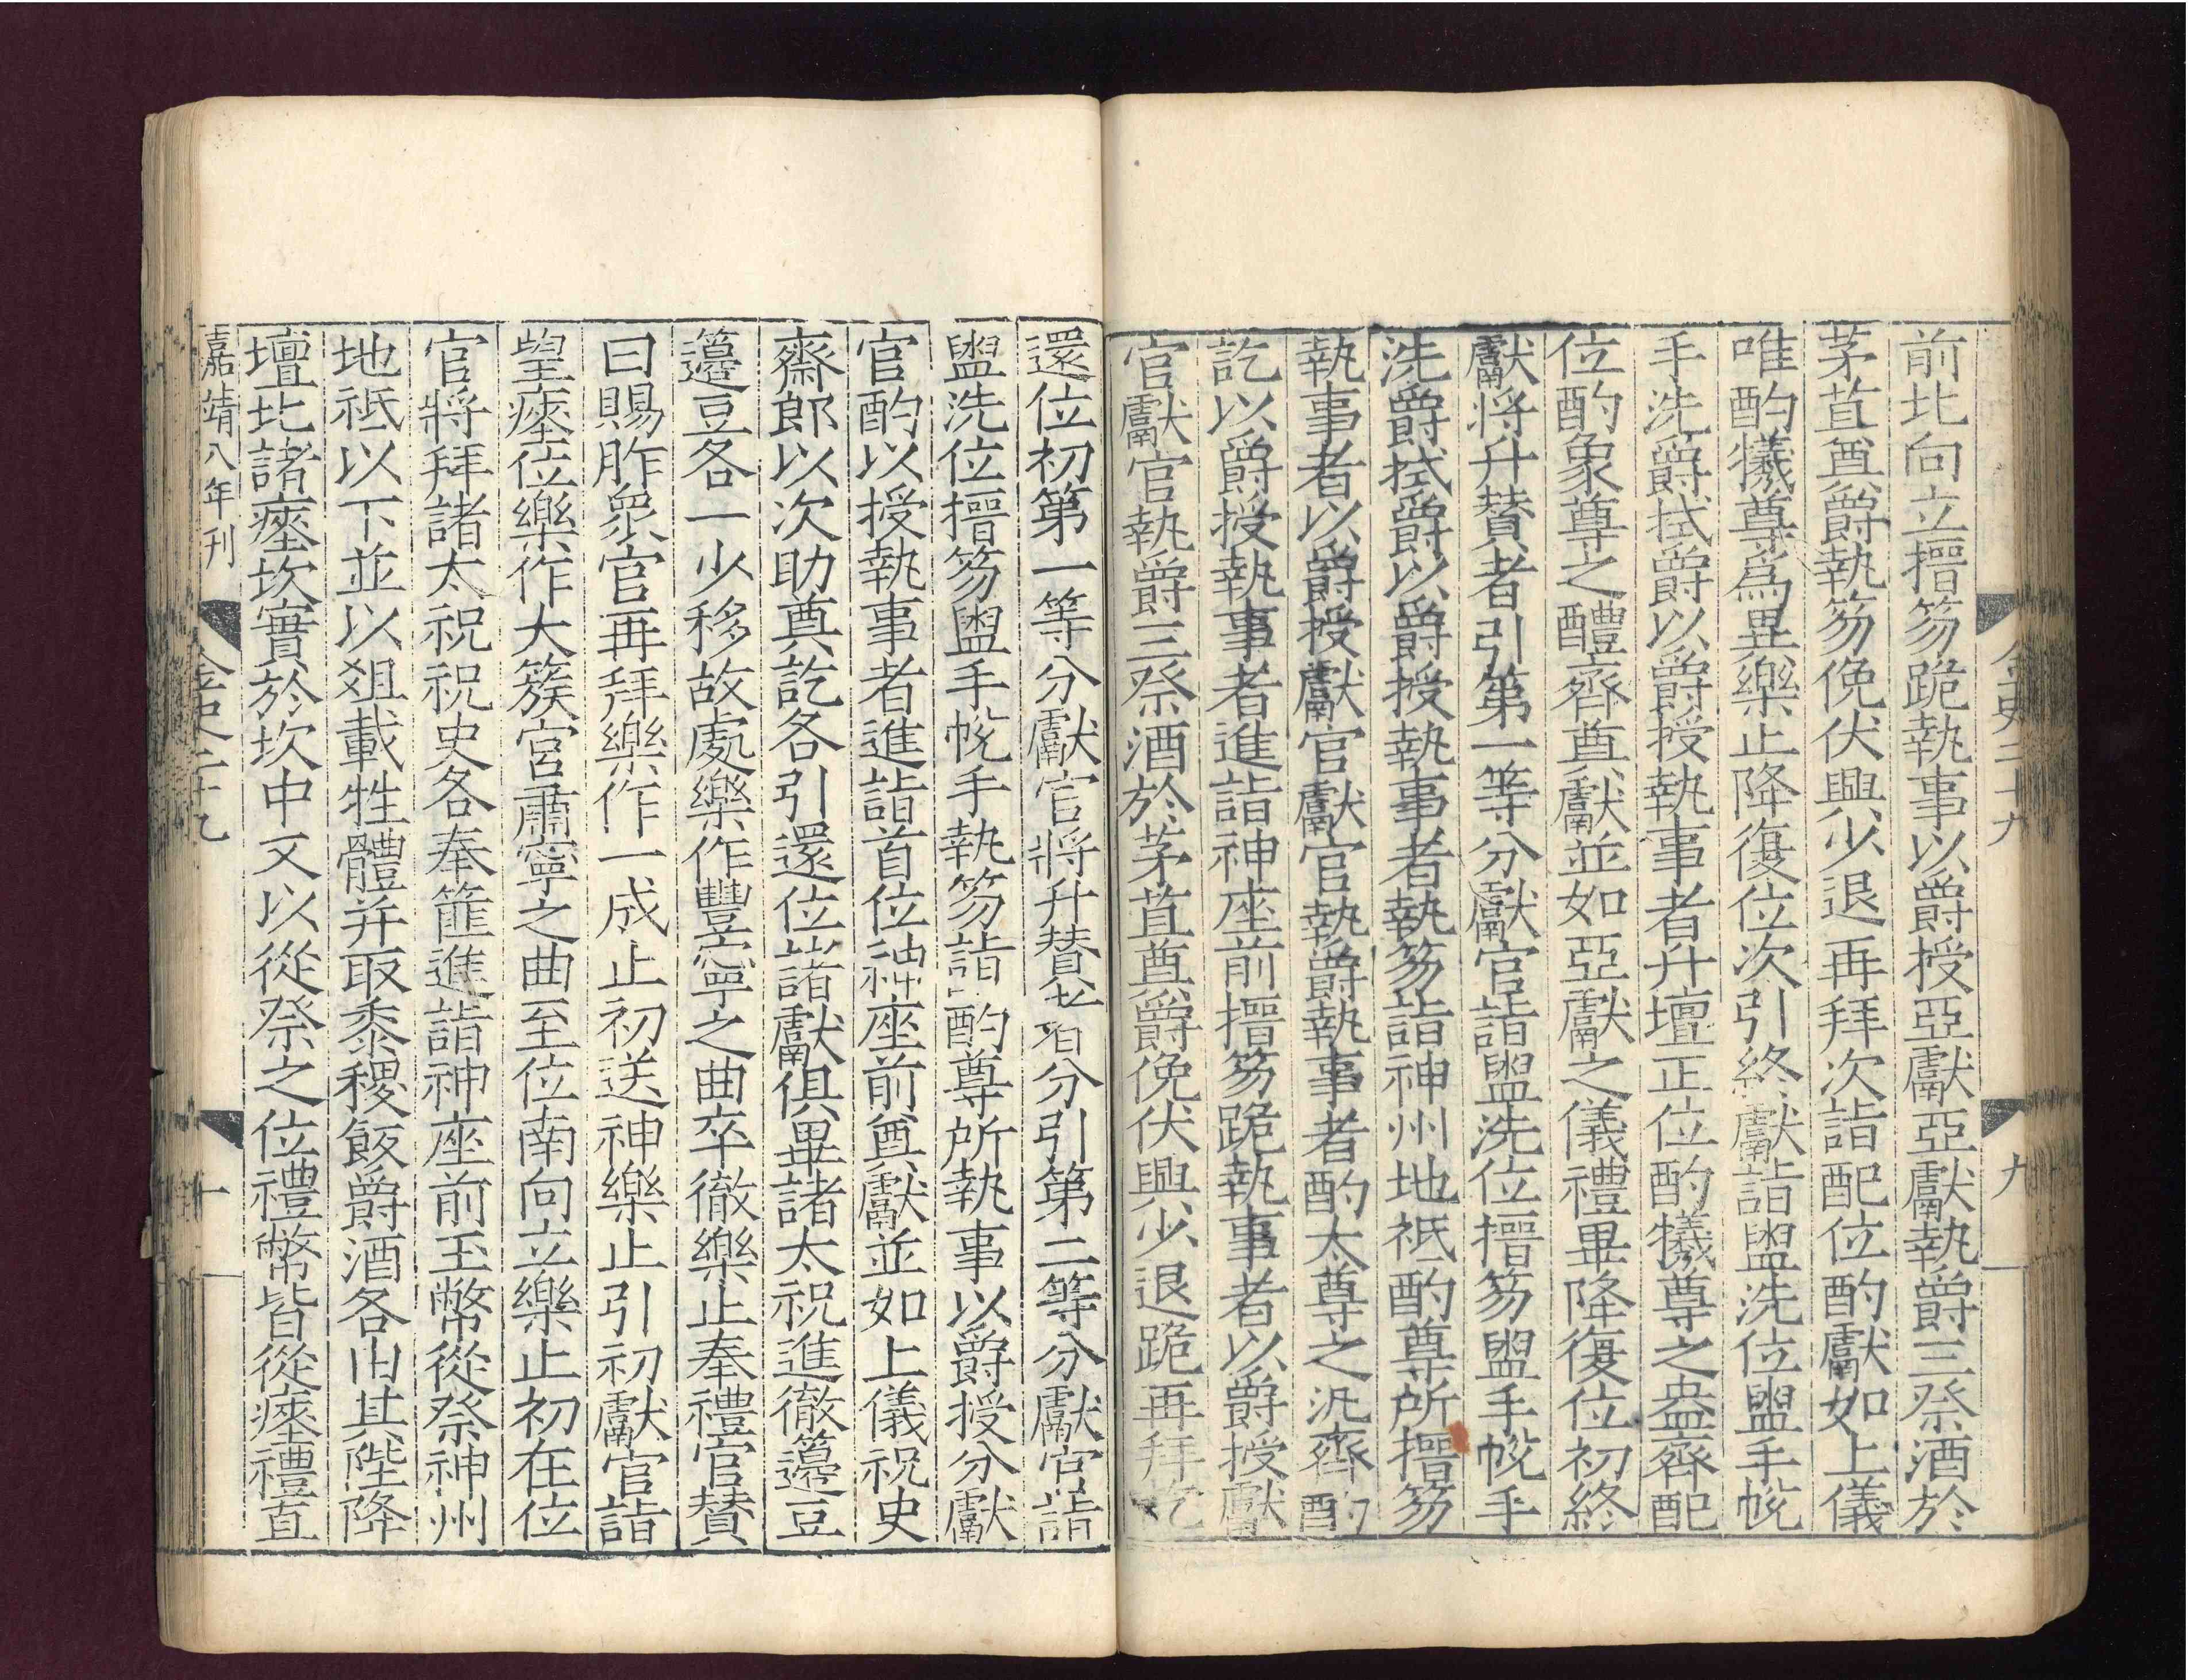 前北向立搢笏跪執事以爵授亞獻亞獻執爵三祭酒於
茅苴奠爵執笏俛伏興少退再拜次詣配位酌獻如上儀
唯酌犧尊爲異樂止降復位次引終獻詣盥洗位盥手帨
手洗爵拭爵以爵授執事者升壇正位酌犧尊之盎齊配
位酌象尊之醴齊奠獻並如亞獻之儀禮畢降復位初終
獻將升贊者引第一等分獻官詣盥洗位搢笏盥手帨手
洗爵拭爵以爵授執事者執笏詣神州地祇酌尊所搢笏
執事者以爵授獻官獻官執爵執事者酌太尊之汎齊酌
訖以爵授執事者進詣神座前搢笏跪執事者以爵授獻
官獻官執爵三祭酒於茅苴奠爵俛伏興少退跪再拜訖
金史二十九
九
還位初第一等分獻官將升贊者分引第二等分獻官詣
盥洗位搢笏盥手帨手執笏詣酌尊所執事以爵授分獻
官酌以授執事者進詣首位神座前奠獻並如上儀祝史
齋郎以次助奠訖各引還位諸獻俱畢諸太祝進徹籩豆
籩豆各一少移故處樂作豐寧之曲卒徹樂止奉禮官贊
曰賜胙衆官再拜樂作一成止初送神樂止引初獻官詣
望瘞位樂作大簇宮肅寧之曲至位南向立樂止初在位
官將拜諸太祝祝史各奉篚進詣神座前玉幣從祭神州
地祇以下並以俎載牲體并取黍稷飯爵酒各由其陛降
壇北詣瘞坎實於坎中又以從祭之位禮幣皆從瘞禮直
嘉靖八年刊